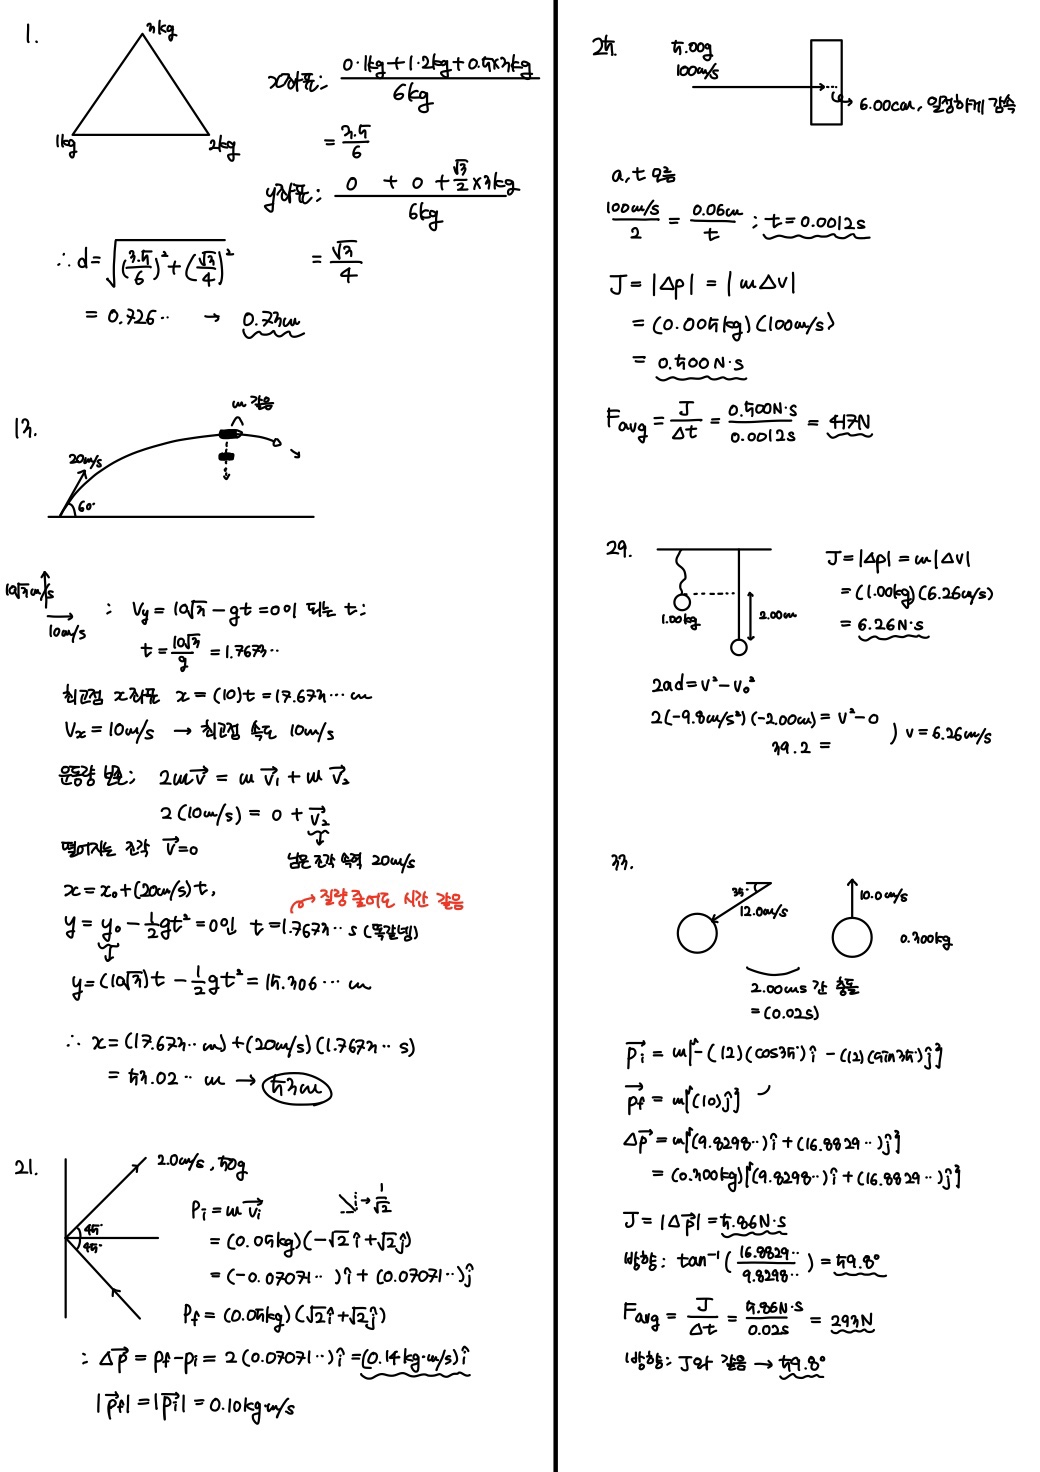 1.
3kg
1kg
2kg
x좌표: (0·1kg+1·2kg+0.5×3kg)/6kg
= 3.5/6
y좌표: (0 + 0 + √3/2×3kg)/6kg
= √3/4
∴ d = √((3.5/6)²+(√3/4)²)
= 0.726·· → 0.73m
13.
m 같음
20m/s
60°
10√3m/s
10m/s
: Vy = 10√3 - gt = 0이 되는 t:
t = 10√3/g = 1.7673··
최고점 x좌표 x = (10)t = 17.673··· m
Vx = 10m/s → 최고점 속도 10m/s
운동량 보존: 2mv⃗ = m v⃗₁ + m v⃗₂
2(10m/s) = 0 + v⃗₂
떨어지는 조각 v⃗=0
남은 조각 속력 20m/s
x = x₀+(20m/s)t,
질량 줄어도 시간 같음
y = y₀ - 1/2gt² = 0인 t = 1.7673·· s (똑같넹)
y = (10√3)t - 1/2gt² = 15.306··· m
∴ x = (17.673·· m) + (20m/s)(1.7673·· s)
= 53.02·· m → 53m
21.
2.0m/s, 50g
45°
45°
Pi = m v⃗i
i → 1/√2
= (0.05kg)(-√2 î + √2 ĵ)
= (-0.07071··) î + (0.07071··) ĵ
Pf = (0.05kg)(√2 î + √2 ĵ)
: Δp⃗ = pf - pi = 2(0.07071··) î = (0.14kg·m/s) î
|p⃗f| = |p⃗i| = 0.10kg·m/s
25.
5.00g
100m/s
6.00cm, 일정하게 감속
a, t 모름
(100m/s)/2 = 0.06m/t ; t = 0.0012s
J = |Δp| = |mΔv|
= (0.005kg)(100m/s)
= 0.500N·s
Favg = J/Δt = 0.500N·s/0.0012s = 417N
29.
1.00kg
2.00m
J = |Δp| = m|Δv|
= (1.00kg)(6.26m/s)
= 6.26N·s
2ad = v² - v₀²
2(-9.8m/s²)(-2.00m) = v² - 0
39.2 =
) v = 6.26m/s
33.
35°
12.0m/s
10.0m/s
0.300kg
2.00ms 간 충돌
= (0.02s)
p⃗i = m[-(12)(cos35°) î - (12)(sin35°) ĵ]
p⃗f = m[(10) ĵ]
Δp⃗ = m[(9.8298··) î + (16.8829··) ĵ]
= (0.300kg)[(9.8298··) î + (16.8829··) ĵ]
J = |Δp⃗| = 5.86N·s
방향: tan⁻¹(16.8829··/9.8298··) = 59.8°
Favg = J/Δt = 5.86N·s/0.02s = 293N
방향: J와 같음 → 59.8°